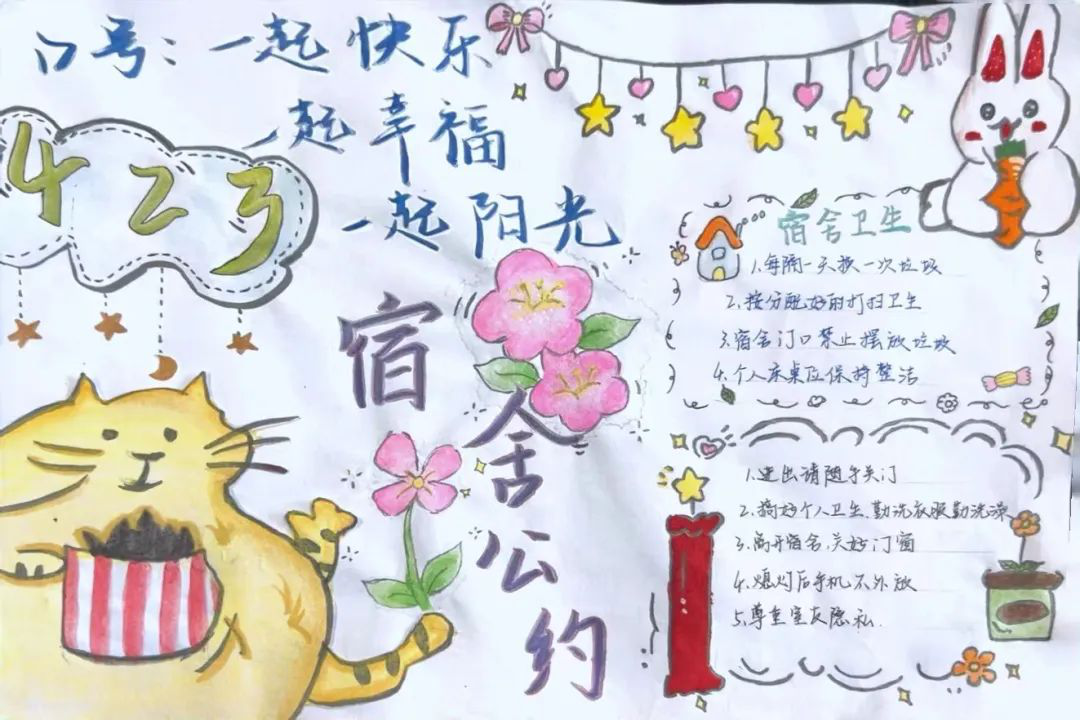 口号：一起快乐
一起幸福
一起阳光
423
宿舍公约
宿舍卫生
1.每隔一天换一次垃圾
2.按分配好的打扫卫生
3.宿舍门口禁止摆放垃圾
4.个人床桌应保持整洁
1.进出请随手关门
2.搞好个人卫生、勤洗衣服勤洗澡
3.离开宿舍、关好门窗
4.熄灯后手机不外放
5.尊重室友隐私.